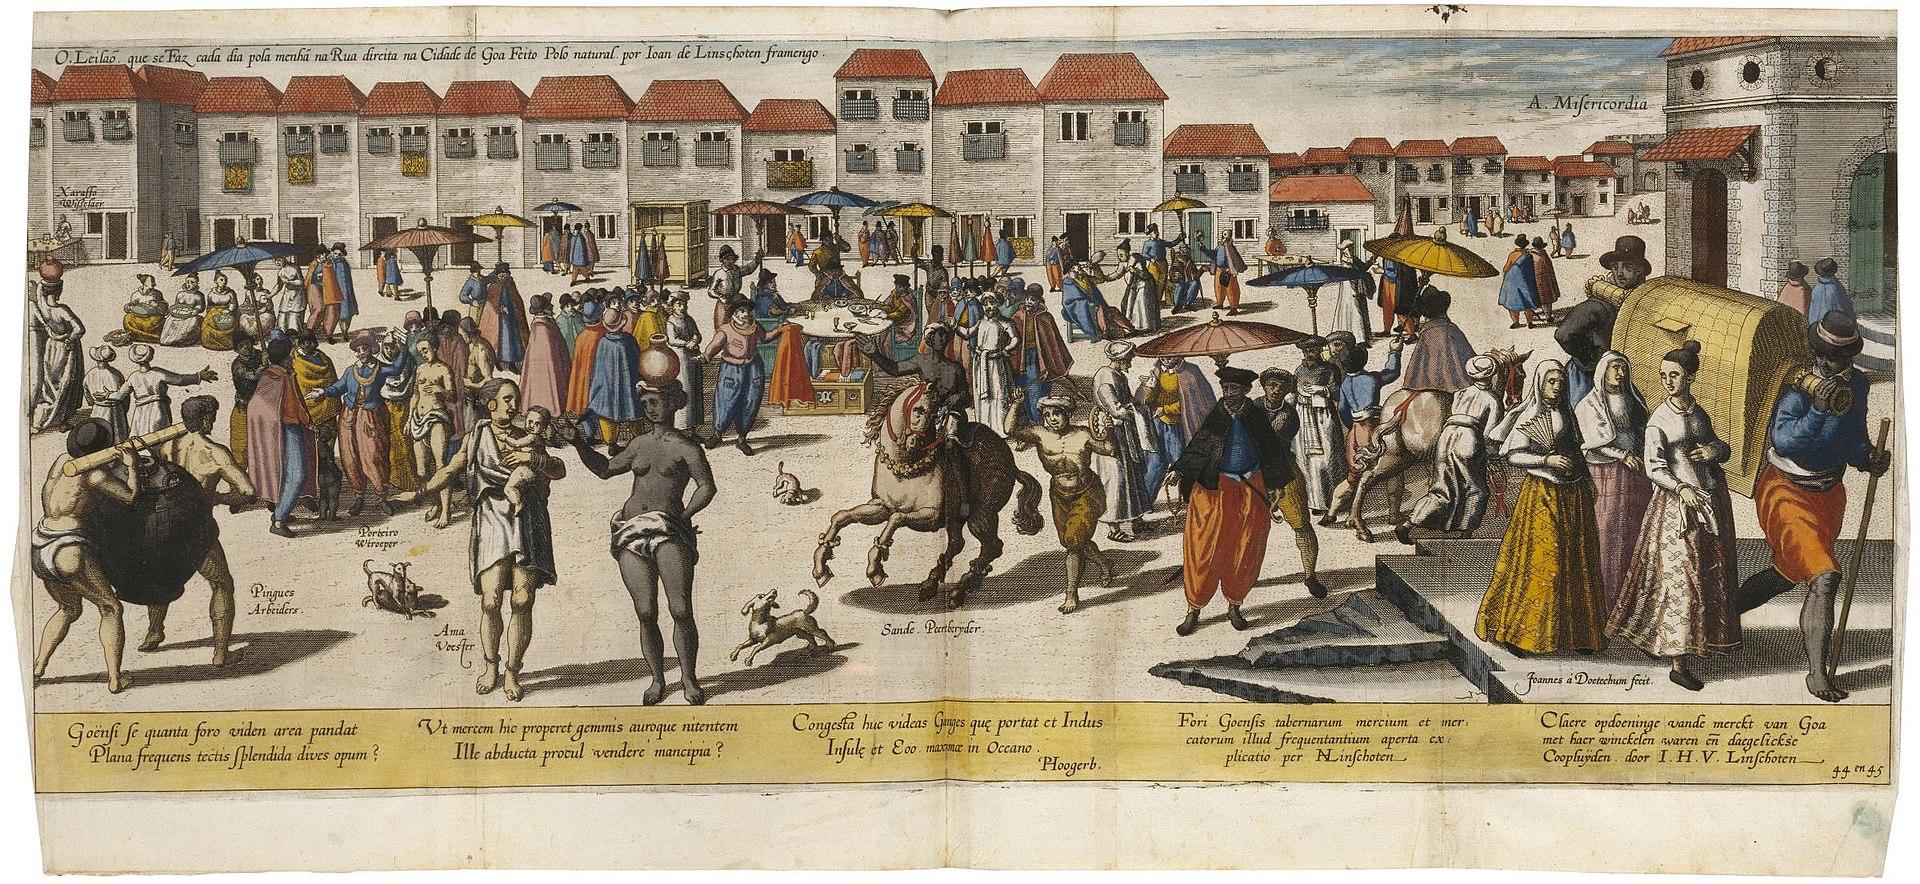 O. Leilaõ. que se Faz cada dia pola menhã na Rua direita na Cidade de Goa Feito Polo natural por Ioan de Linschoten framengo.
A. Misericordia
Xaraffo
Wisselaer
Porteiro
Wtroeper
Pingues
Arbeiders.
Ama
Voester
Sande. Peertberÿder.
Joannes à Doetechum fecit.
Goënsi se quanta foro viden area pandat
Plana frequens tectis splendida dives opum?
Vt mercem hic properet gemmis auroque nitentem
Ille abducta procul vendere mancipia?
Congesta huc videas Ganges quę portat et Indus
Insulę et Eoo maxumæ in Oceano.
Hoogerb.
Fori Goensis tabernarum mercium et mer:
catorum illud frequentantium aperta ex:
plicatio per Linschoten
Claere opdoeninge vande merckt van Goa
met haer winckelen waren eñ daegelickse
Coopluÿden door I. H. V. Linschoten
44 en 45